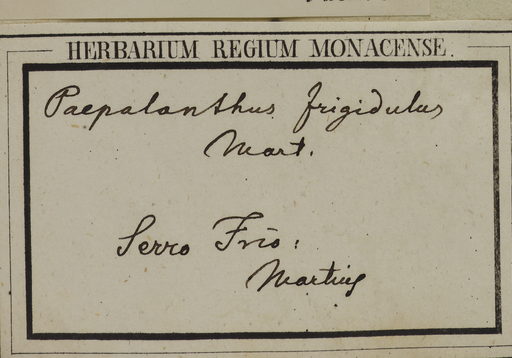 HERBARIUM REGIUM MONACENSE.
Paepalanthus frigidulus
Mart.
Serro Frio:
Martius